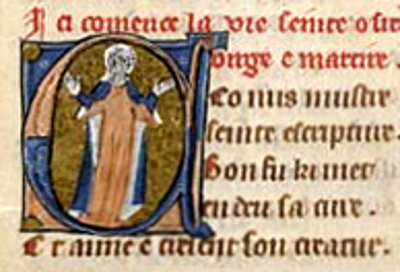 Ici comence la vie seinte osith
virge e martire.
Co nus mustre
seinte escripture.
Bon fu ki met
en deu sa cure.
Et aime e crient son creatur.